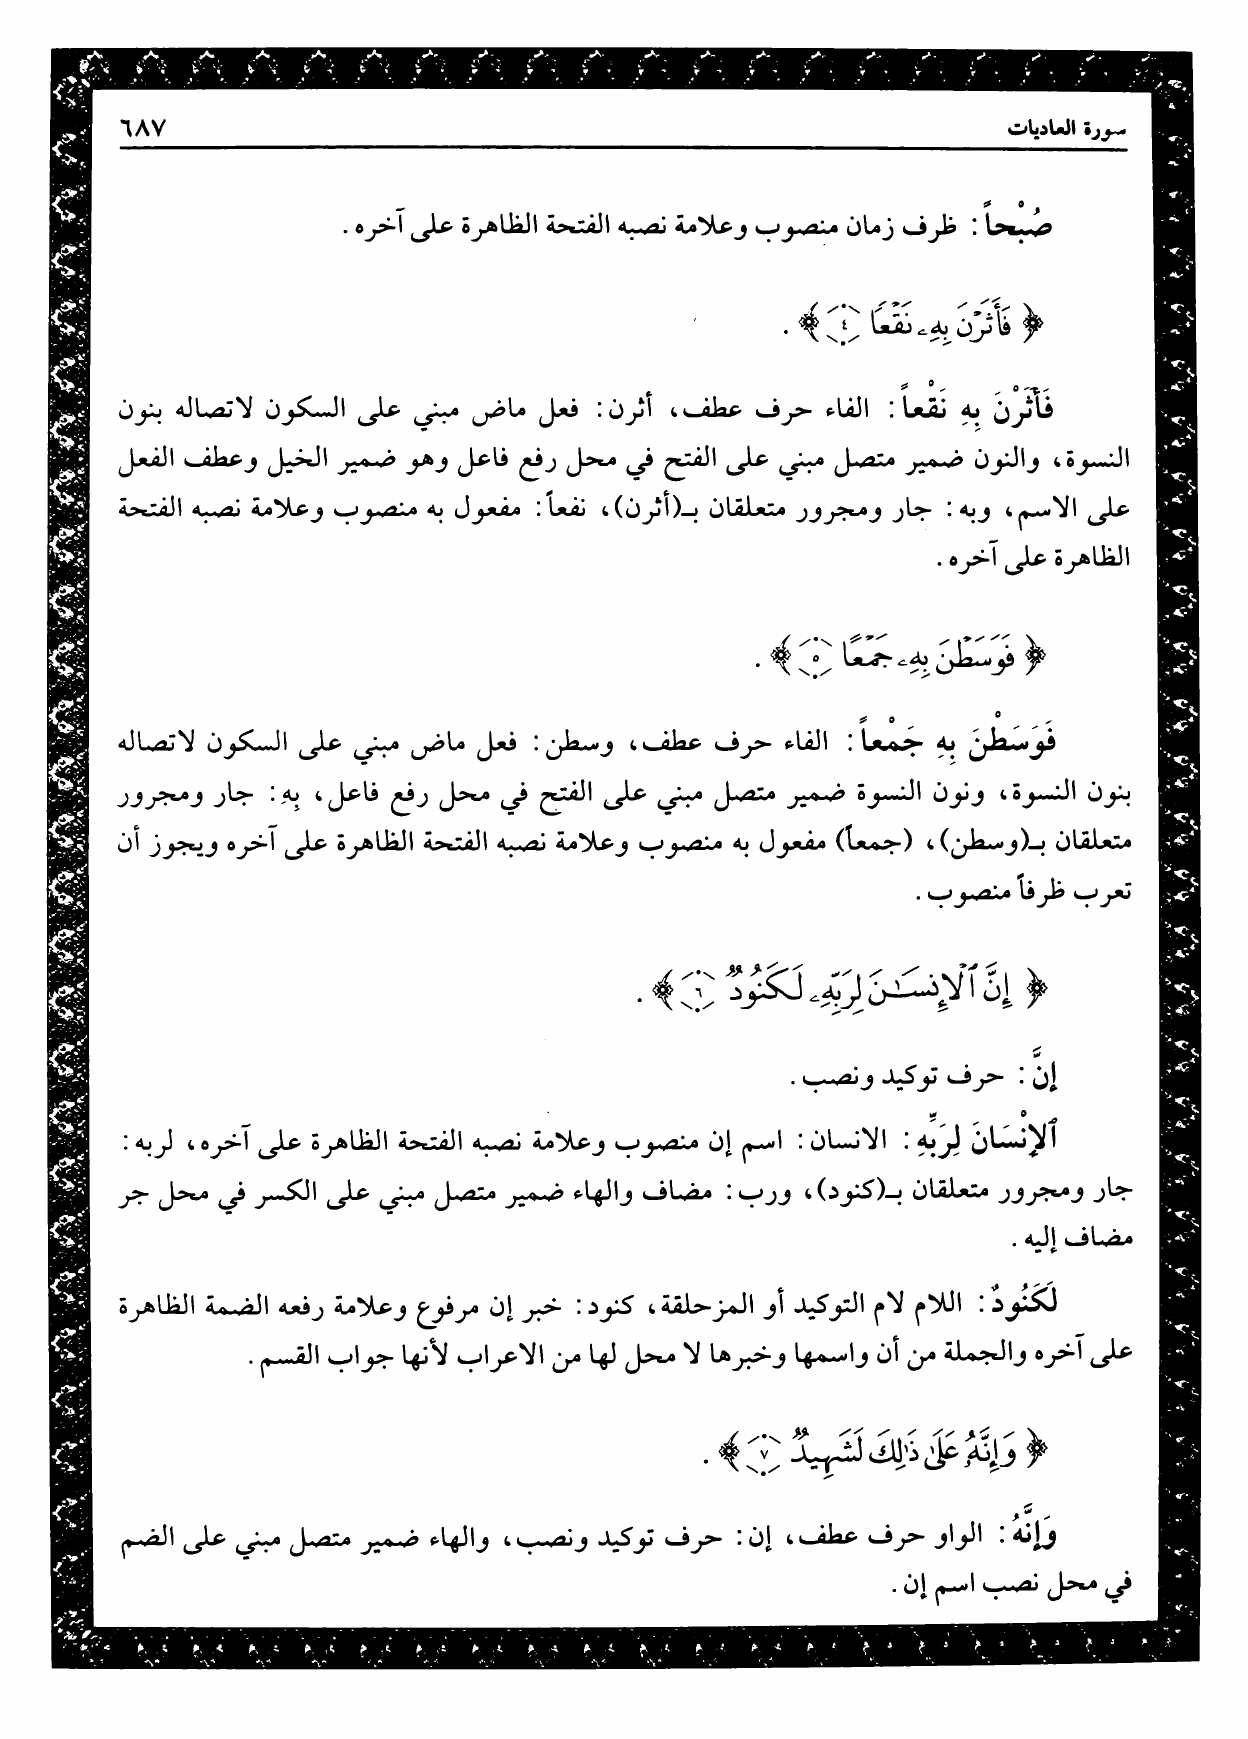 سورة العاديات ٦٨٧
صُبْحاً: ظرف زمان منصوب وعلامة نصبه الفتحة الظاهرة على آخره.
﴿ فَأَثَرْنَ بِهِۦ نَقْعًا ٤ ﴾.
فَأَثَرْنَ بِهِ نَقْعاً: الفاء حرف عطف، أثرن: فعل ماض مبني على السكون لاتصاله بنون
النسوة، والنون ضمير متصل مبني على الفتح في محل رفع فاعل وهو ضمير الخيل وعطف الفعل
على الاسم، وبه: جار ومجرور متعلقان بـ(أثرن)، نفعاً: مفعول به منصوب وعلامة نصبه الفتحة
الظاهرة على آخره.
﴿ فَوَسَطْنَ بِهِۦ جَمْعًا ٥ ﴾.
فَوَسَطْنَ بِهِ جَمْعاً: الفاء حرف عطف، وسطن: فعل ماض مبني على السكون لاتصاله
بنون النسوة، ونون النسوة ضمير متصل مبني على الفتح في محل رفع فاعل، بِهِ: جار ومجرور
متعلقان بـ(وسطن)، (جمعاً) مفعول به منصوب وعلامة نصبه الفتحة الظاهرة على آخره ويجوز أن
تعرب ظرفاً منصوب.
﴿ إِنَّ ٱلْإِنسَـٰنَ لِرَبِّهِۦ لَكَنُودٌ ٦ ﴾.
إنَّ: حرف توكيد ونصب.
ٱلإنْسَانَ لِرَبِّهِ: الانسان: اسم إن منصوب وعلامة نصبه الفتحة الظاهرة على آخره، لربه:
جار ومجرور متعلقان بـ(كنود)، ورب: مضاف والهاء ضمير متصل مبني على الكسر في محل جر
مضاف إليه.
لَكَنُودٌ: اللام لام التوكيد أو المزحلقة، كنود: خبر إن مرفوع وعلامة رفعه الضمة الظاهرة
على آخره والجملة من أن واسمها وخبرها لا محل لها من الاعراب لأنها جواب القسم.
﴿ وَإِنَّهُۥ عَلَىٰ ذَٰلِكَ لَشَهِيدٌ ٧ ﴾.
وَإنَّهُ: الواو حرف عطف، إن: حرف توكيد ونصب، والهاء ضمير متصل مبني على الضم
في محل نصب اسم إن.